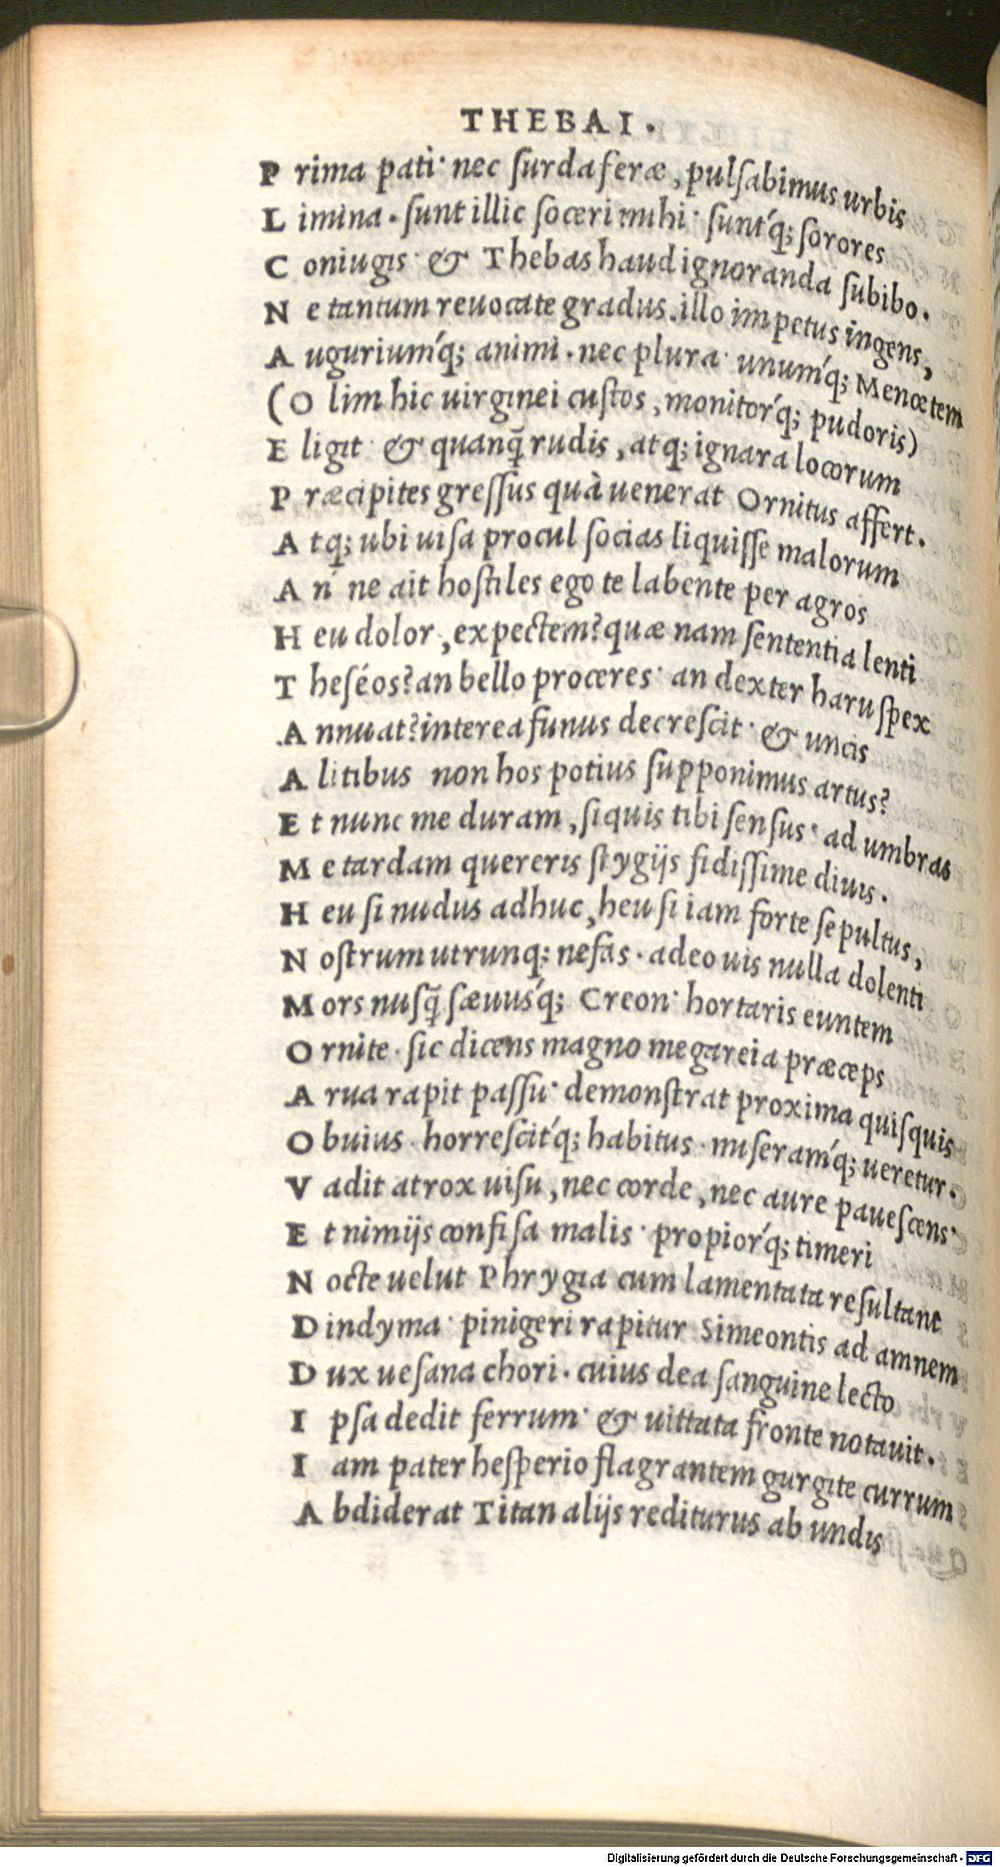 THEBAI.
P rima pati· nec ſurda feræ, pulſabimus urbis
L imina. ſunt illic ſoceri mihi· ſunt'q; ſorores
C oniugis· & Thebas haud ignoranda ſubibo.
N e tantum reuocate gradus. illo impetus ingens,
A ugurium'q; animi. nec plura· unum'q; Menœtem
(O lim hic uirginei cuſtos, monitor'q; pudoris)
E ligit· & quanq̃ rudis, atq; ignara locorum
P ræcipites greſſus quà uenerat Ornitus affert.
A tq; ubi uiſa procul ſocias liquiſſe malorum
A n' ne ait hoſtiles ego te labente per agros
H eu dolor, expectem? quæ nam ſententia lenti
T heſéos? an bello proceres· an dexter haruſpex
A nnuat? interea funus decreſcit· & uncis
A litibus non hos potius ſupponimus artus?
E t nunc me duram, ſiquis tibi ſenſus· ad umbras
M e tardam quereris ſtygijs fidiſſime diuis.
H eu ſi nudus adhuc, heu ſi iam forte ſepultus,
N oſtrum utrunq; nefas. adeo uis nulla dolenti
M ors nuſq̃ ſæuus'q; Creon· hortaris euntem
O rnite. ſic dicens magno megareia præceps
A rua rapit paſſu· demonſtrat proxima quiſquis
O buius. horreſcit'q; habitus. miſeram'q; ueretur.
V adit atrox uiſu, nec corde, nec aure paueſcens·
E t nimijs confiſa malis· propior'q; timeri
N octe uelut Phrygia cum lamentata reſultant
D indyma· pinigeri rapitur Simeontis ad amnem
D ux ueſana chori. cuius dea ſanguine lecto
I pſa dedit ferrum· & uittata fronte notauit.
I am pater heſperio flagrantem gurgite currum
A bdiderat Titan alijs rediturus ab undis
Digitalisierung gefördert durch die Deutsche Forschungsgemeinschaft - DFG